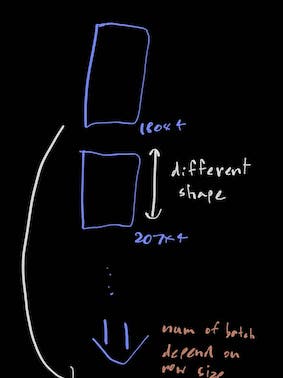 180x4
different
shape
207x4
num of batch
depend on
row size